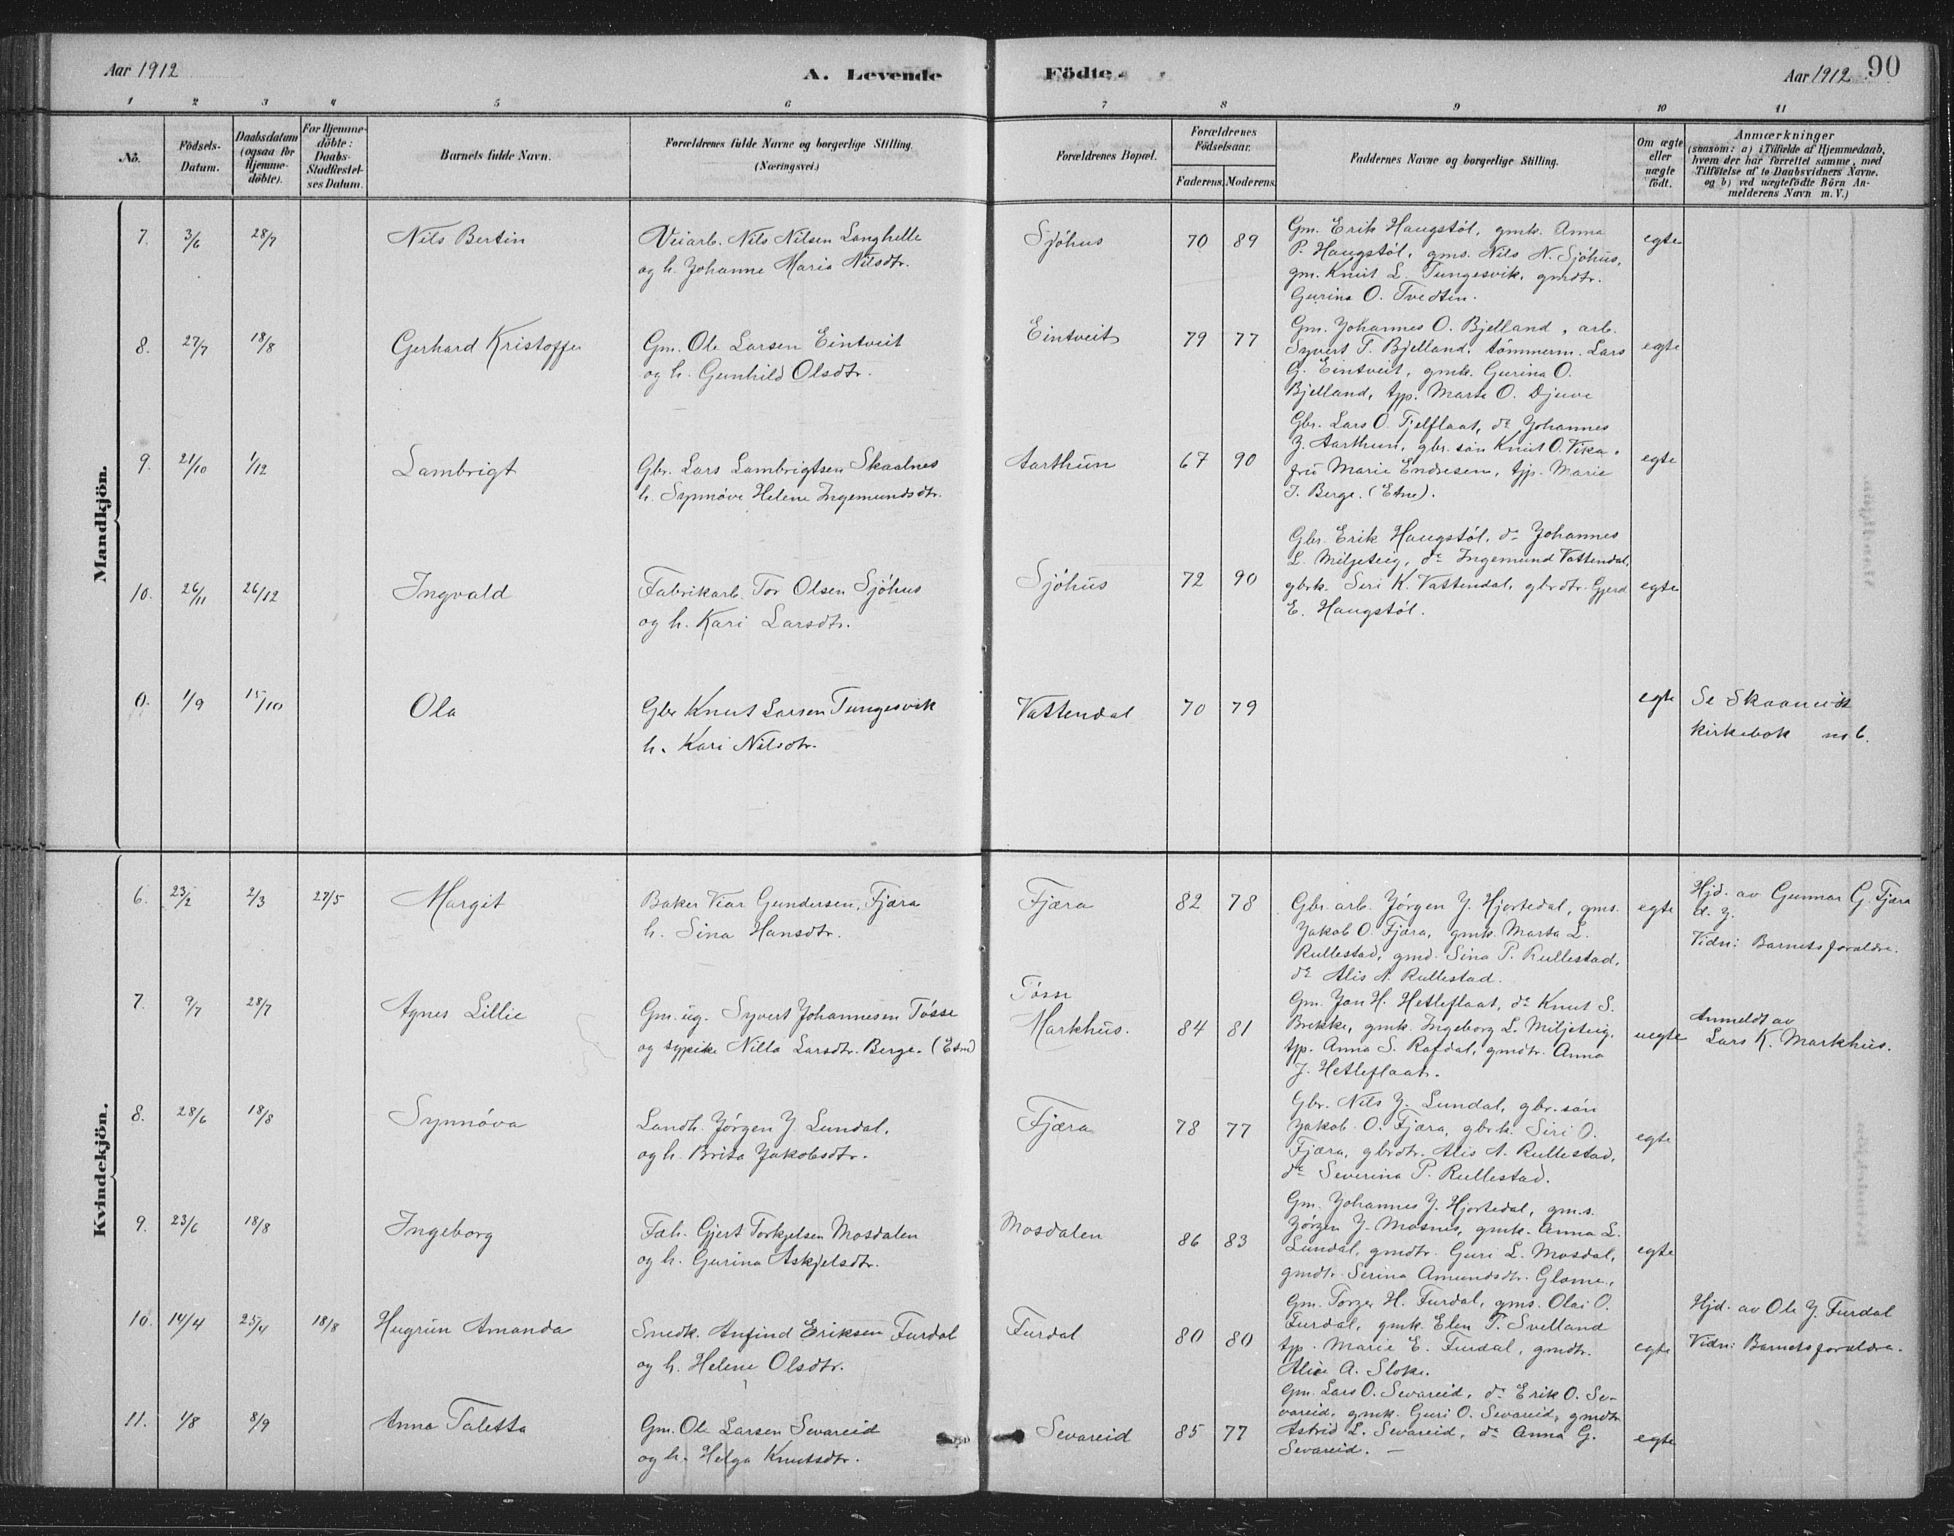 Aar 1912
A. Levende
Födte.
Aar 1912
90
1 2 3 4 5 6 7 8 9 10 11
No.
Födsels-
Datum.
Daabsdatum
(ogsaa for
Hjemme-
döbte).
For Hjemme-
döbte:
Daabs-
Stadfæstel-
ses Datum.
Barnets fulde Navn.
Forældrenes fulde Navne og borgerlige Stilling.
(Næringsvei.)
Forældrenes Bopæl.
Forældrenes
Födselsaar.
Faderens. Moderens.
Faddernes Navne og borgerlige Stilling.
Om ægte
eller
uægte
födt.
Anmærkninger
(saasom: a) i Tilfælde af Hjemmedaab,
hvem der har forrettet samme, med
Tilföielse af to Daabsvidners Navne.
og b) ved uægtefödte Börn An-
melderens Navn m. V.)
Mandkjön.
7. 3/6 28/7
Nils Bertin
Veiarb. Nils Nilsen Langhelle
og h. Johanne Maria Nilsdtr.
Sjöhus
70 89
Gm. Erik Haugstöl, gmk. Anna
P. Haugstöl, gms. Nils N. Sjöhus,
gm. Knut L. Tungesvik, gmdtr.
Gurina O. Tvedten.
egte
8. 27/7 18/8
Gerhard Kristoffer
Gm. Ole Larsen Eintveit
og h. Gunhild Olsdtr.
Eintveit
79 77
Gm. Johannes O. Bjelland, arb.
Syvert T. Bjelland, tömmerm. Lars
G. Eintveit, gmk. Gurina O.
Bjelland, tjp. Marta O. Djuve
egte
9. 21/10 1/12
Lambrigt
Gbr. Lars Lambrigtsen Skaalnes
h. Synnöve Helene Ingemundsdtr.
Aarthun
67 90
Gbr. Lars O. Fjelflaat, do Johannes
J. Aarthun, gbr. sön Knut O. Vika,
fru Marie Endresen, tjp. Marie
J. Berge. (Etne).
egte
10. 26/11 26/12
Ingvald
Fabrikarb. Tor Olsen Sjöhus
og h. Kari Larsdtr.
Sjöhus
72 90
Gbr. Erik Haugstöl, do Johannes
L. Miljeteig, do Ingemund Vattendal,
gbrk. Siri K. Vattendal, gbrdtr. Gjerd
E. Haugstöl.
egte
0. 1/9 15/10
Ola
Gbr Knut Larsen Tungesvik
h. Kari Nilsdtr.
Vattendal
70 79
egte
Se Skaanevik
kirkebok no 6.
Kvindekjön.
6. 23/2 2/3 27/5
Margit
Baker Viar Gundersen, Fjæra
h. Sina Hansdtr.
Fjæra
82 78
Gbr. arb. Jörgen J. Hjortedal, gms.
Jakob O. Fjæra, gmk. Marta L.
Rullestad, gmd. Sina P. Rullestad,
do Alis A. Rullestad.
egte
Hjd. av Gunnar G. Fjæra
d. y.
Vidn: Barnets forældre.
7. 9/7 28/7
Agnes Lillie
Gm. ug. Syvert Johannesen Tösse
og sypike Nilla Larsdtr. Berge. (Etne)
Tösse
Markhus.
84 81
Gm. Jon H. Hetleflaat, do Knut S.
Brekke, gmk. Ingeborg L. Miljeteig,
tjp. Anna S. Rafdal, gmdtr. Anna
J. Hetleflaat.
uegte
Anmeldt av
Lars K. Markhus.
8. 28/6 18/8
Synnöva
Landh. Jörgen J. Lundal,
og h. Brita Jakobsdtr.
Fjæra
78 77
Gbr. Nils J. Lundal, gbr. sön
Jakob O. Fjæra, gbrk. Siri O.
Fjæra, gbrdtr. Alis A. Rullestad,
do Severina P. Rullestad.
egte
9. 23/6 18/8
Ingeborg
Fab. Gjert Torkjelsen Mosdalen
og h. Gurina Askjelsdtr.
Mosdalen
86 83
Gm. Johannes J. Hjortedal, gm.s.
Jörgen J. Mosnes, gmk. Anna L.
Lundal, gmdtr. Guri L. Mosdal,
gmdtr. Serina Amundsdtr. Glome.
egte
10. 14/4 25/4 18/8
Hugrun Amanda
Smedk. Anfind Eriksen Furdal
og h. Helene Olsdtr.
Furdal
80 80
Gm. Torger H. Furdal, gms. Olai O.
Furdal, gmk. Elen P. Svelland
tjp. Marie E. Furdal, gmdtr.
Alice A. Sloke.
egte
Hjd. av Ole J. Furdal
Vidn: Barnets forældre.
11. 1/8 8/9
Anna Taletta
Gm. Ole Larsen Sevareid
og h. Helga Knutsdtr.
Sevareid
85 77
Gm. Lars O. Sevareid, do Erik O. Se-
vareid, gmk. Guri O. Sevareid, gmdtr
Astrid L. Sevareid, do Anna G.
Sevareid. —
egte